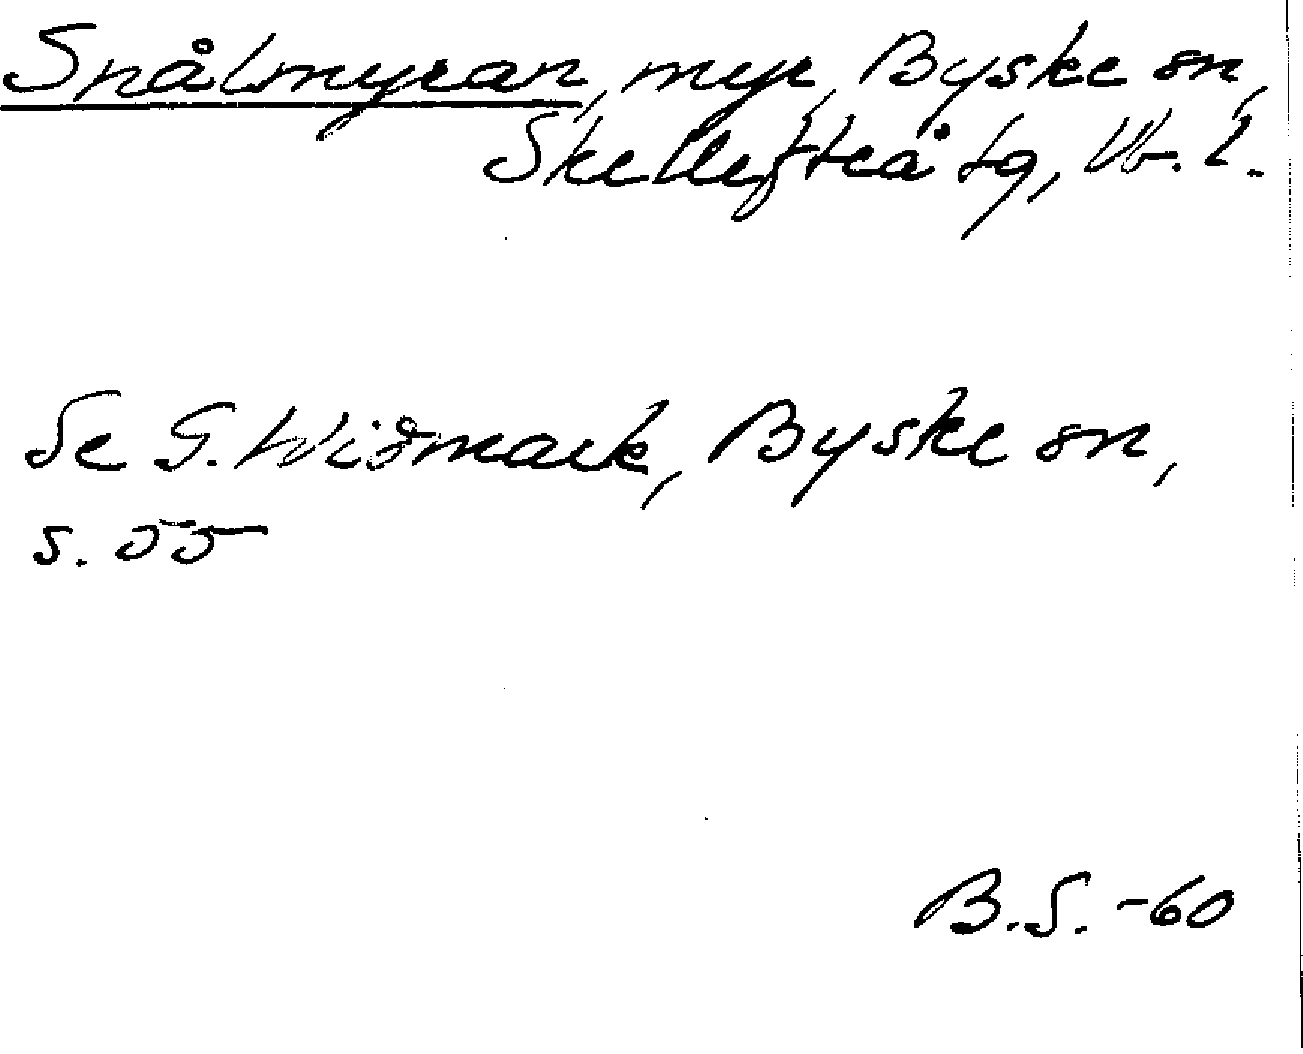 Snålmyran, myr, Byske sn,
Skellefteå tg, Vb. l.
Se G. Widmark, Byske sn,
s. 55
B.S. -60